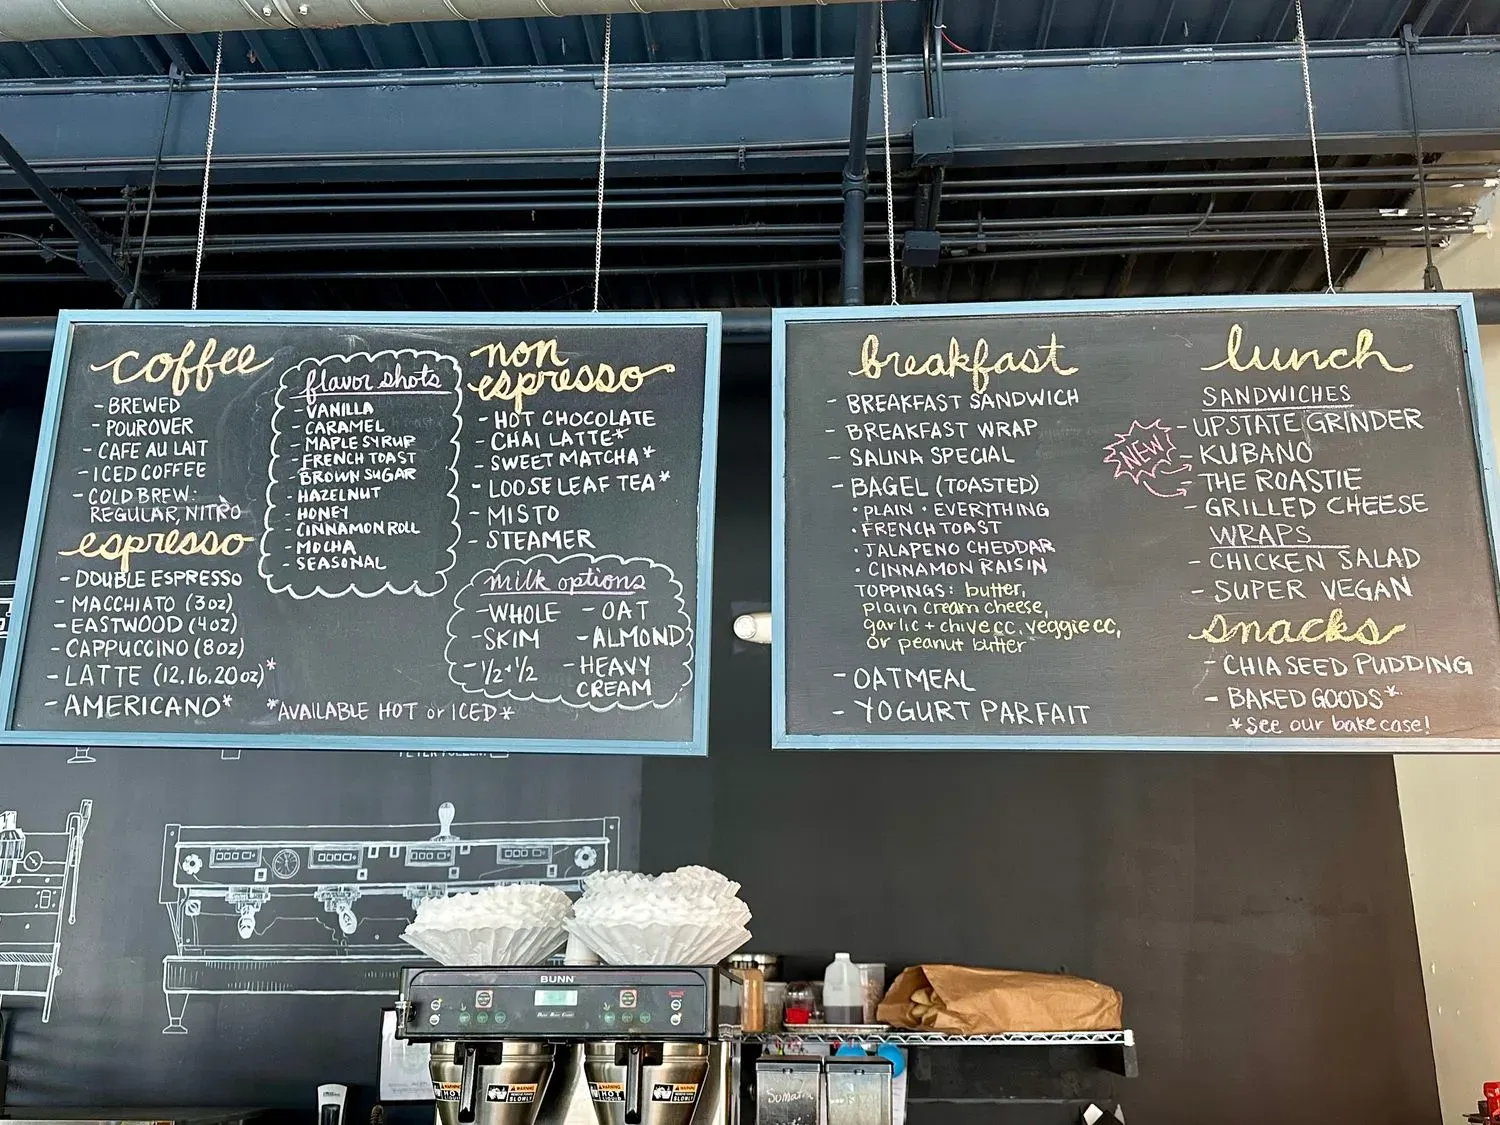 coffee
- BREWED
- POUROVER
- CAFE AU LAIT
- ICED COFFEE
- COLD BREW:
REGULAR, NITRO
espresso
- DOUBLE ESPRESSO
- MACCHIATO (3oz)
- EASTWOOD (4oz)
- CAPPUCCINO (8oz)
- LATTE (12,16,20oz)*
- AMERICANO*
*AVAILABLE HOT or ICED*
flavor shots
- VANILLA
- CARAMEL
- MAPLE SYRUP
- FRENCH TOAST
- BROWN SUGAR
- HAZELNUT
- HONEY
- CINNAMON ROLL
- MOCHA
- SEASONAL
non
espresso
- HOT CHOCOLATE
- CHAI LATTE*
- SWEET MATCHA*
- LOOSE LEAF TEA*
- MISTO
- STEAMER
milk options
- WHOLE - OAT
- SKIM - ALMOND
- 1/2+1/2 - HEAVY
CREAM
breakfast
- BREAKFAST SANDWICH
- BREAKFAST WRAP
- SALINA SPECIAL
- BAGEL (TOASTED)
• PLAIN • EVERYTHING
• FRENCH TOAST
• JALAPENO CHEDDAR
• CINNAMON RAISIN
TOPPINGS: butter,
plain cream cheese,
garlic + chive cc, veggie cc,
or peanut butter
- OATMEAL
- YOGURT PARFAIT
lunch
SANDWICHES
- UPSTATE GRINDER
NEW
- KUBANO
- THE ROASTIE
- GRILLED CHEESE
WRAPS
- CHICKEN SALAD
- SUPER VEGAN
snacks
- CHIA SEED PUDDING
- BAKED GOODS*
*See our bakecase!
BUNN
WARNING
HOT
LIQUID
WARNING
SLOWLY
WARNING
HOT
LIQUID
WARNING
SLOWLY
Sumatra